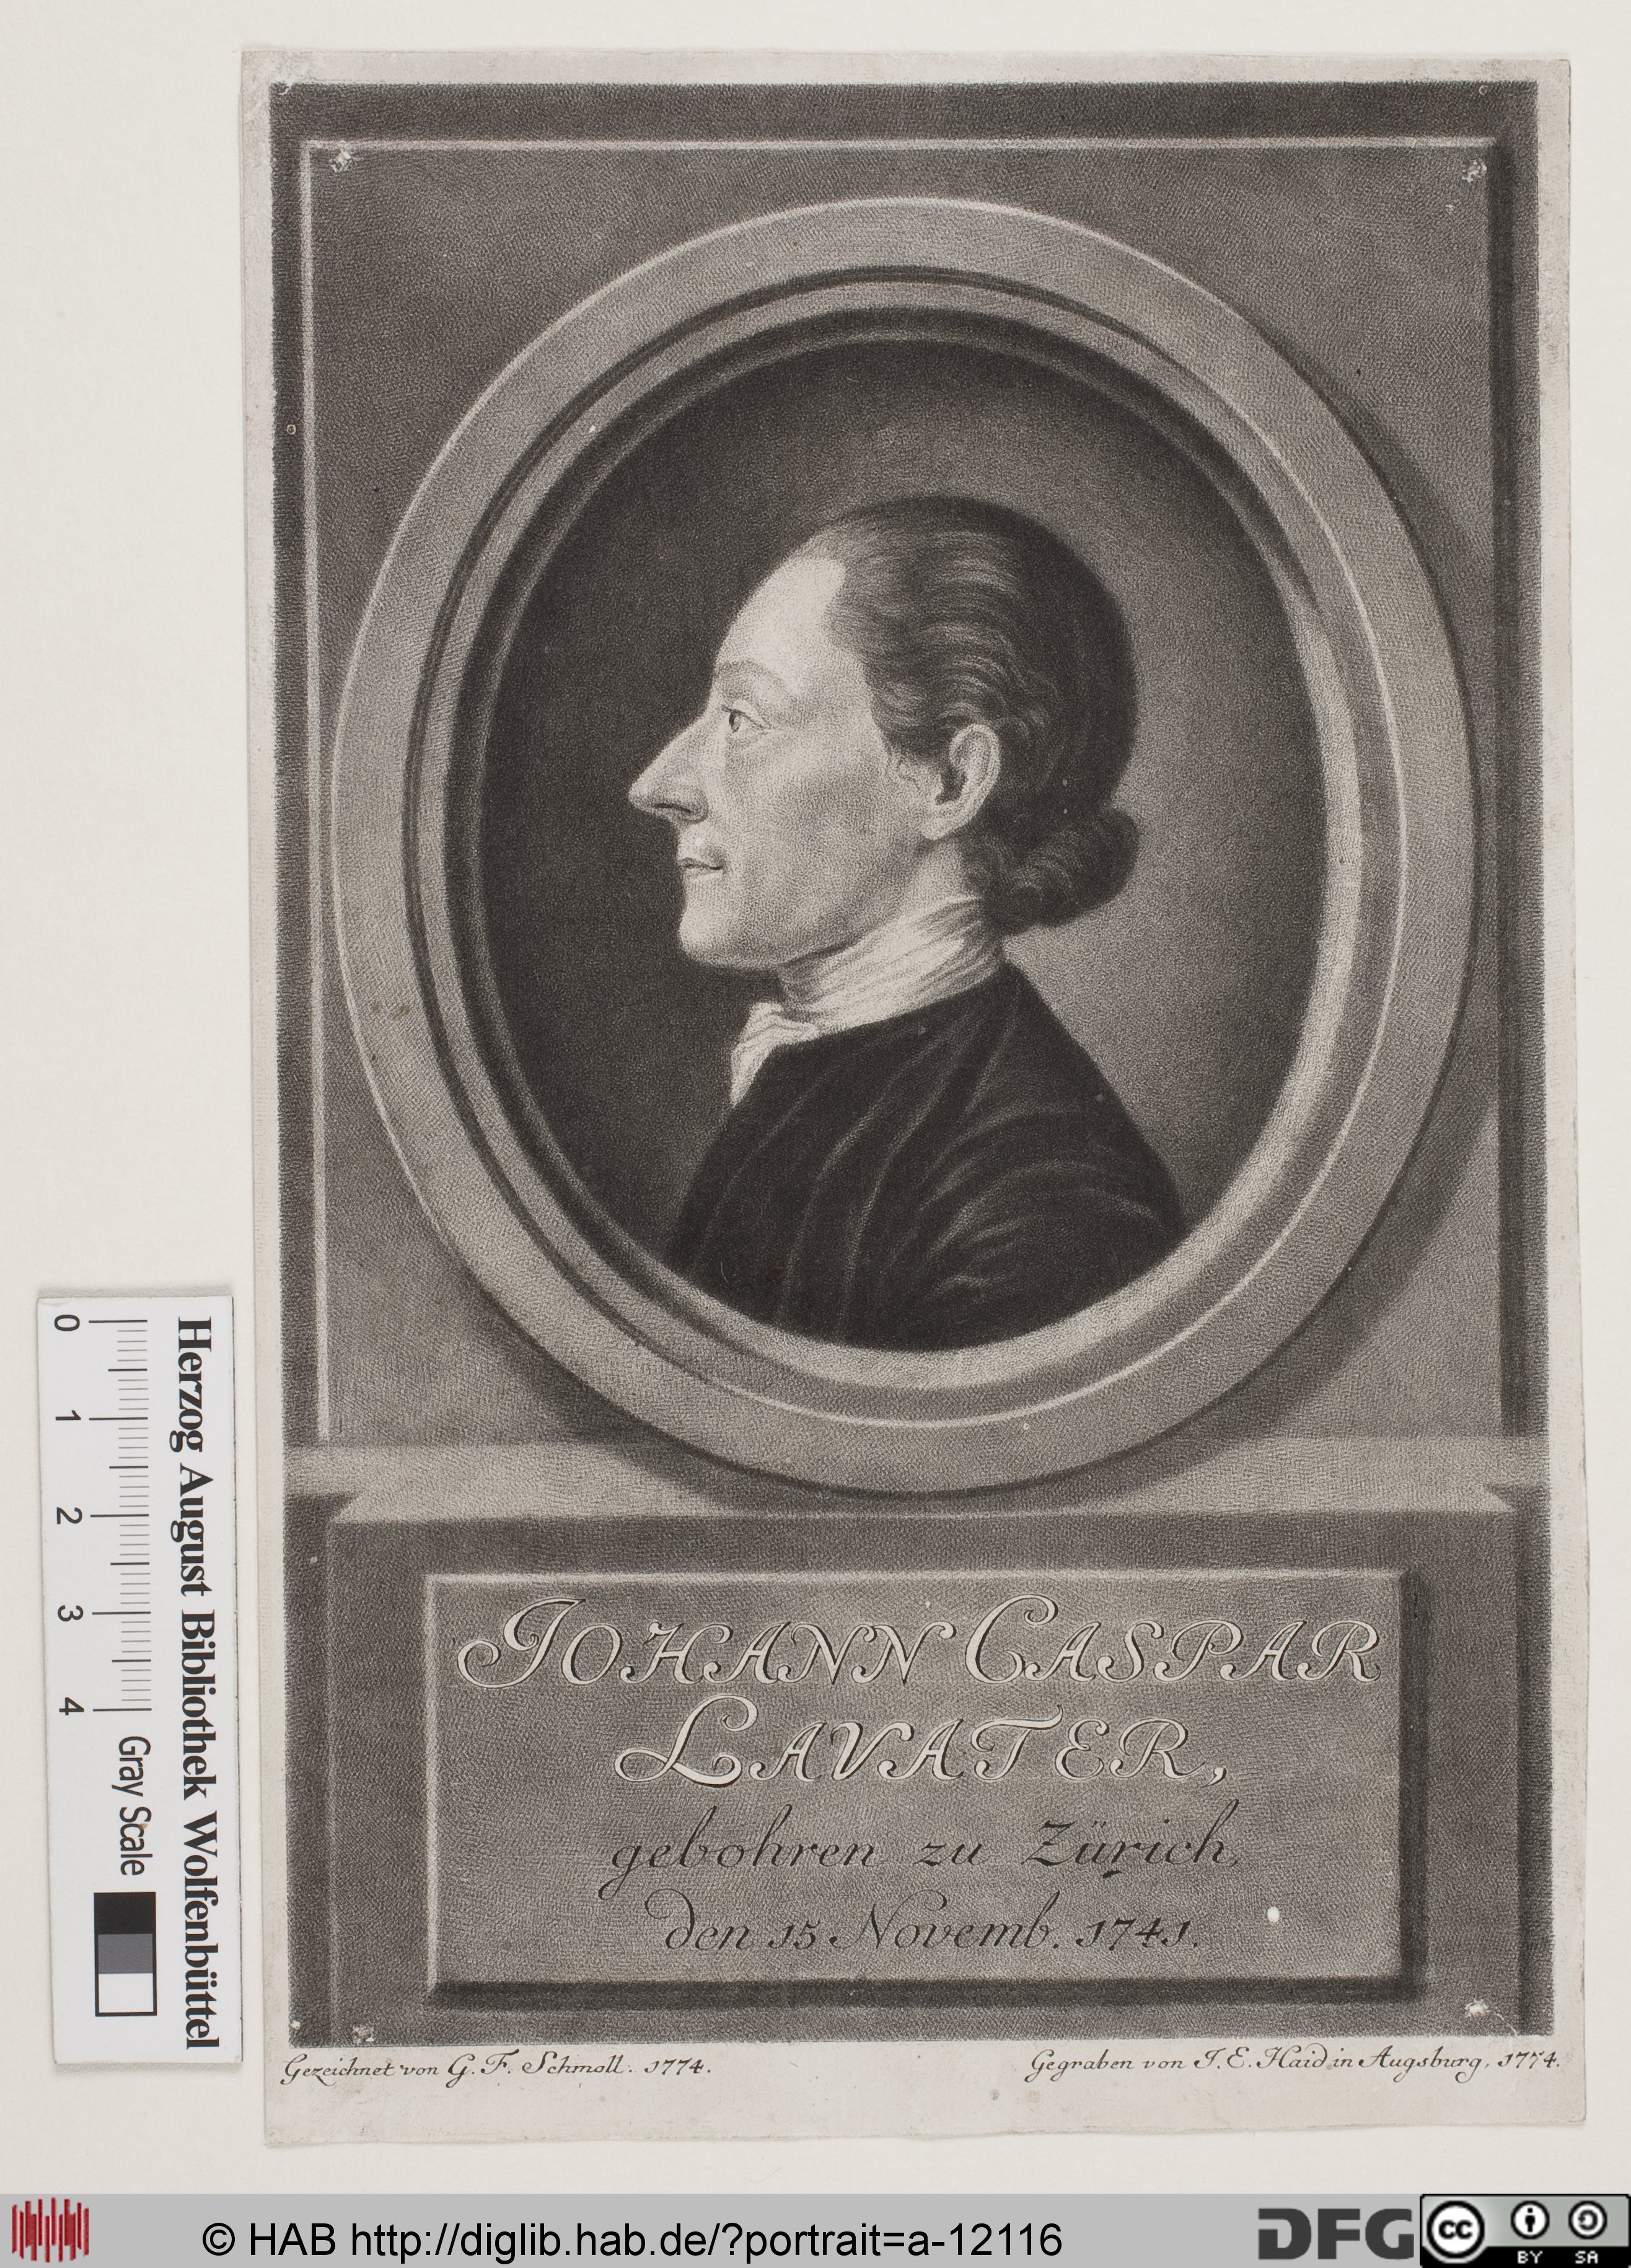 JOHANN CASPAR
LAVATER,
gebohren zu Zürich,
den 15 Novemb. 1741.
Gezeichnet von G. F. Schmoll. 1774.
Gegraben von J. E. Haid in Augsburg, 1774.
Herzog August Bibliothek Wolfenbüttel
0 1 2 3 4 Gray Scale
© HAB http://diglib.hab.de/?portrait=a-12116
DFG
cc BY SA